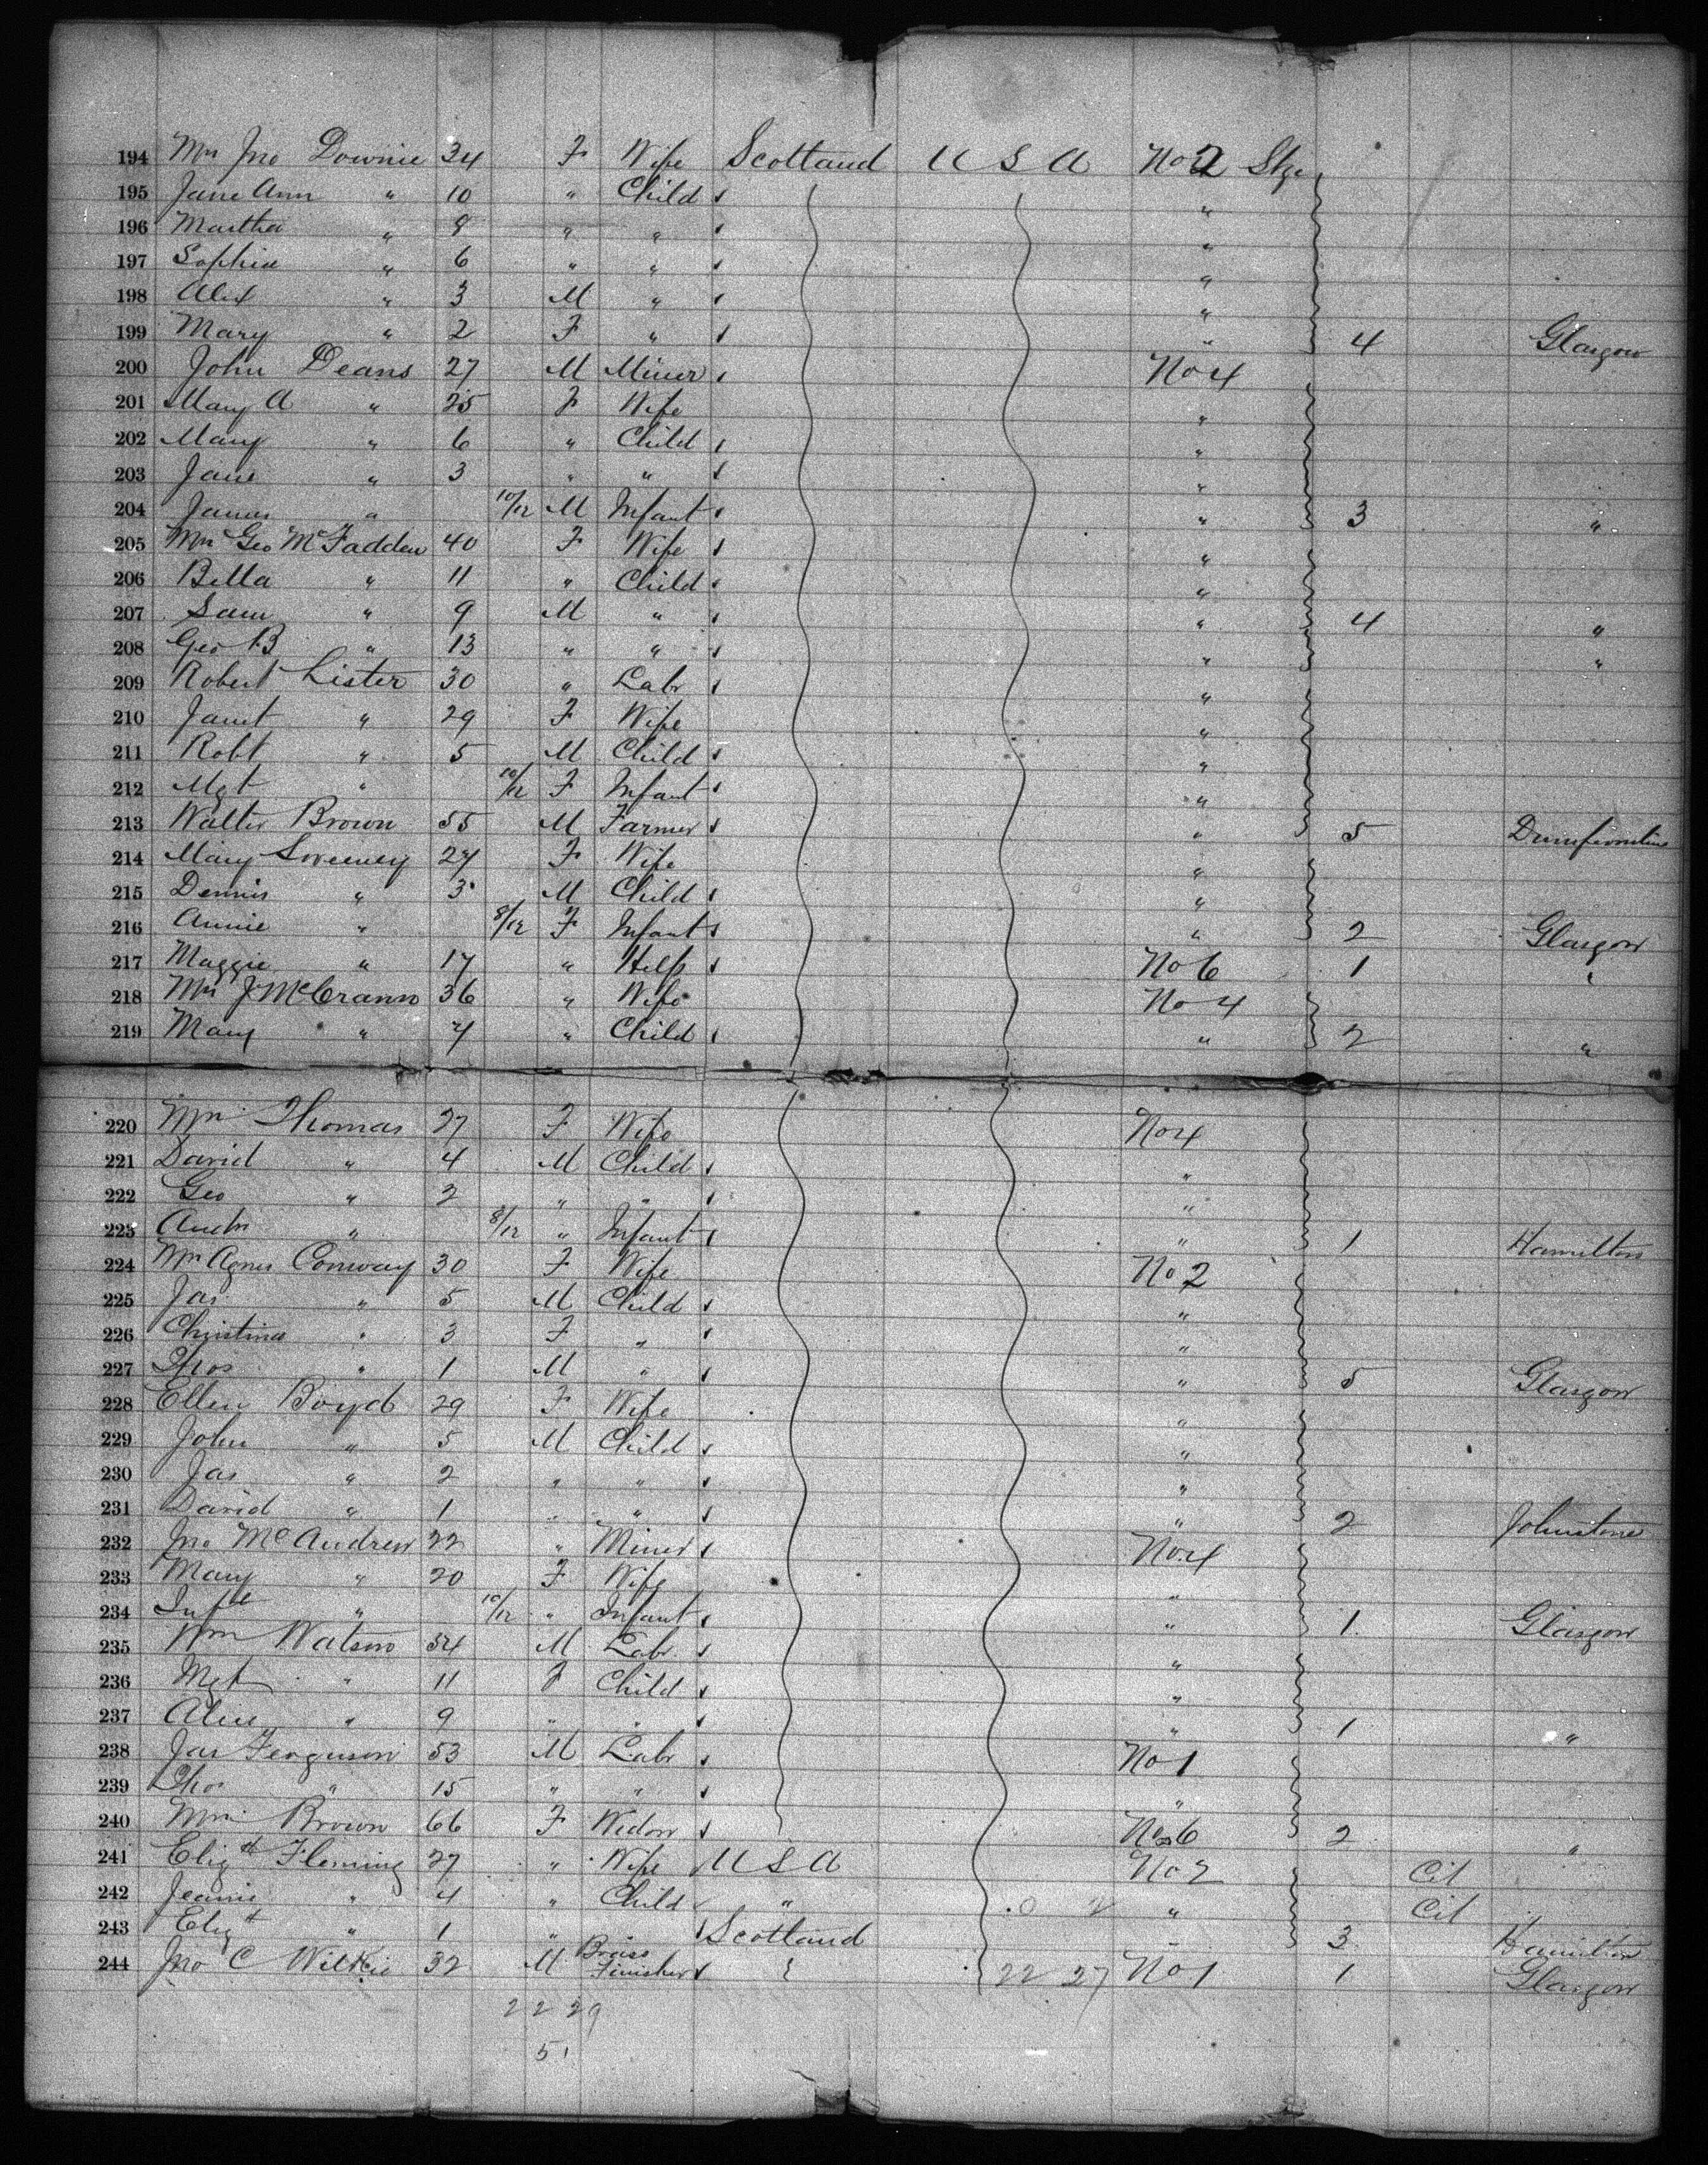 194 Mrs Jno Downie 34 F Wife Scotland U S A No 2 Stge
195 Jane Ann " 10 " Child
196 Martha " 8 " " "
197 Sophia " 6 " " "
198 Alex " 3 M " "
199 Mary " 2 F " " 4 Glasgow
200 John Deans 27 M Miner No 4
201 Mary A " 25 F Wife "
202 Mary " 6 " Child "
203 Jane " 3 " " "
204 James " 10/12 M Infant " 3 "
205 Mrs Geo McFadden 40 F Wife "
206 Bella " 11 " Child "
207 Sam " 9 M " " 4 "
208 Geo B " 13 " " " "
209 Robert Lister 30 " Labr "
210 Janet " 29 F Wife "
211 Robt " 5 M Child "
212 Mgt " 10/12 F Infant "
213 Walter Brown 55 M Farmer " 5 Dunfermline
214 Mary Sweeney 24 F Wife "
215 Dennis " 3 M Child "
216 Annie " 8/12 F Infant " 2 Glasgow
217 Maggie " 17 " Help No 6 1 "
218 Mrs J McCrann 36 " Wife No 4
219 Mary " 7 " Child " 2 "
220 Mrs Thomas 27 F Wife No 4
221 David " 4 M Child "
222 Geo " 2 " " "
223 Andw " 8/12 " Infant " 1 Hamilton
224 Mrs Agnes Conway 30 F Wife No 2
225 Jas " 5 M Child "
226 Christina " 3 F " "
227 Thos " 1 M " " 5 Glasgow
228 Ellen Boyd 29 F Wife "
229 John " 5 M Child "
230 Jas " 2 " " "
231 David " 1 " " " 2 Johnstone
232 Jno McAndrew 22 " Miner No 4
233 Mary " 20 F Wife "
234 Inft " 10/12 " Infant " 1 Glasgow
235 Wm Watson 34 M Labr "
236 Mgt " 11 F Child "
237 Alice " 9 " " " 1 "
238 Jas Ferguson 53 M Labr No 1
239 Thos " 15 " " "
240 Mrs Brown 66 F Widow No 6 2 "
241 Elizth Fleming 27 " Wife U S A No 2 Cit
242 Jeanie " 4 " Child " " Cit
243 Elizt " 1 " Scotland 3 Hamilton
244 Jno C Wilkie 32 M Brass Finisher 22 27 No 1 1 Glasgow
22 29
51